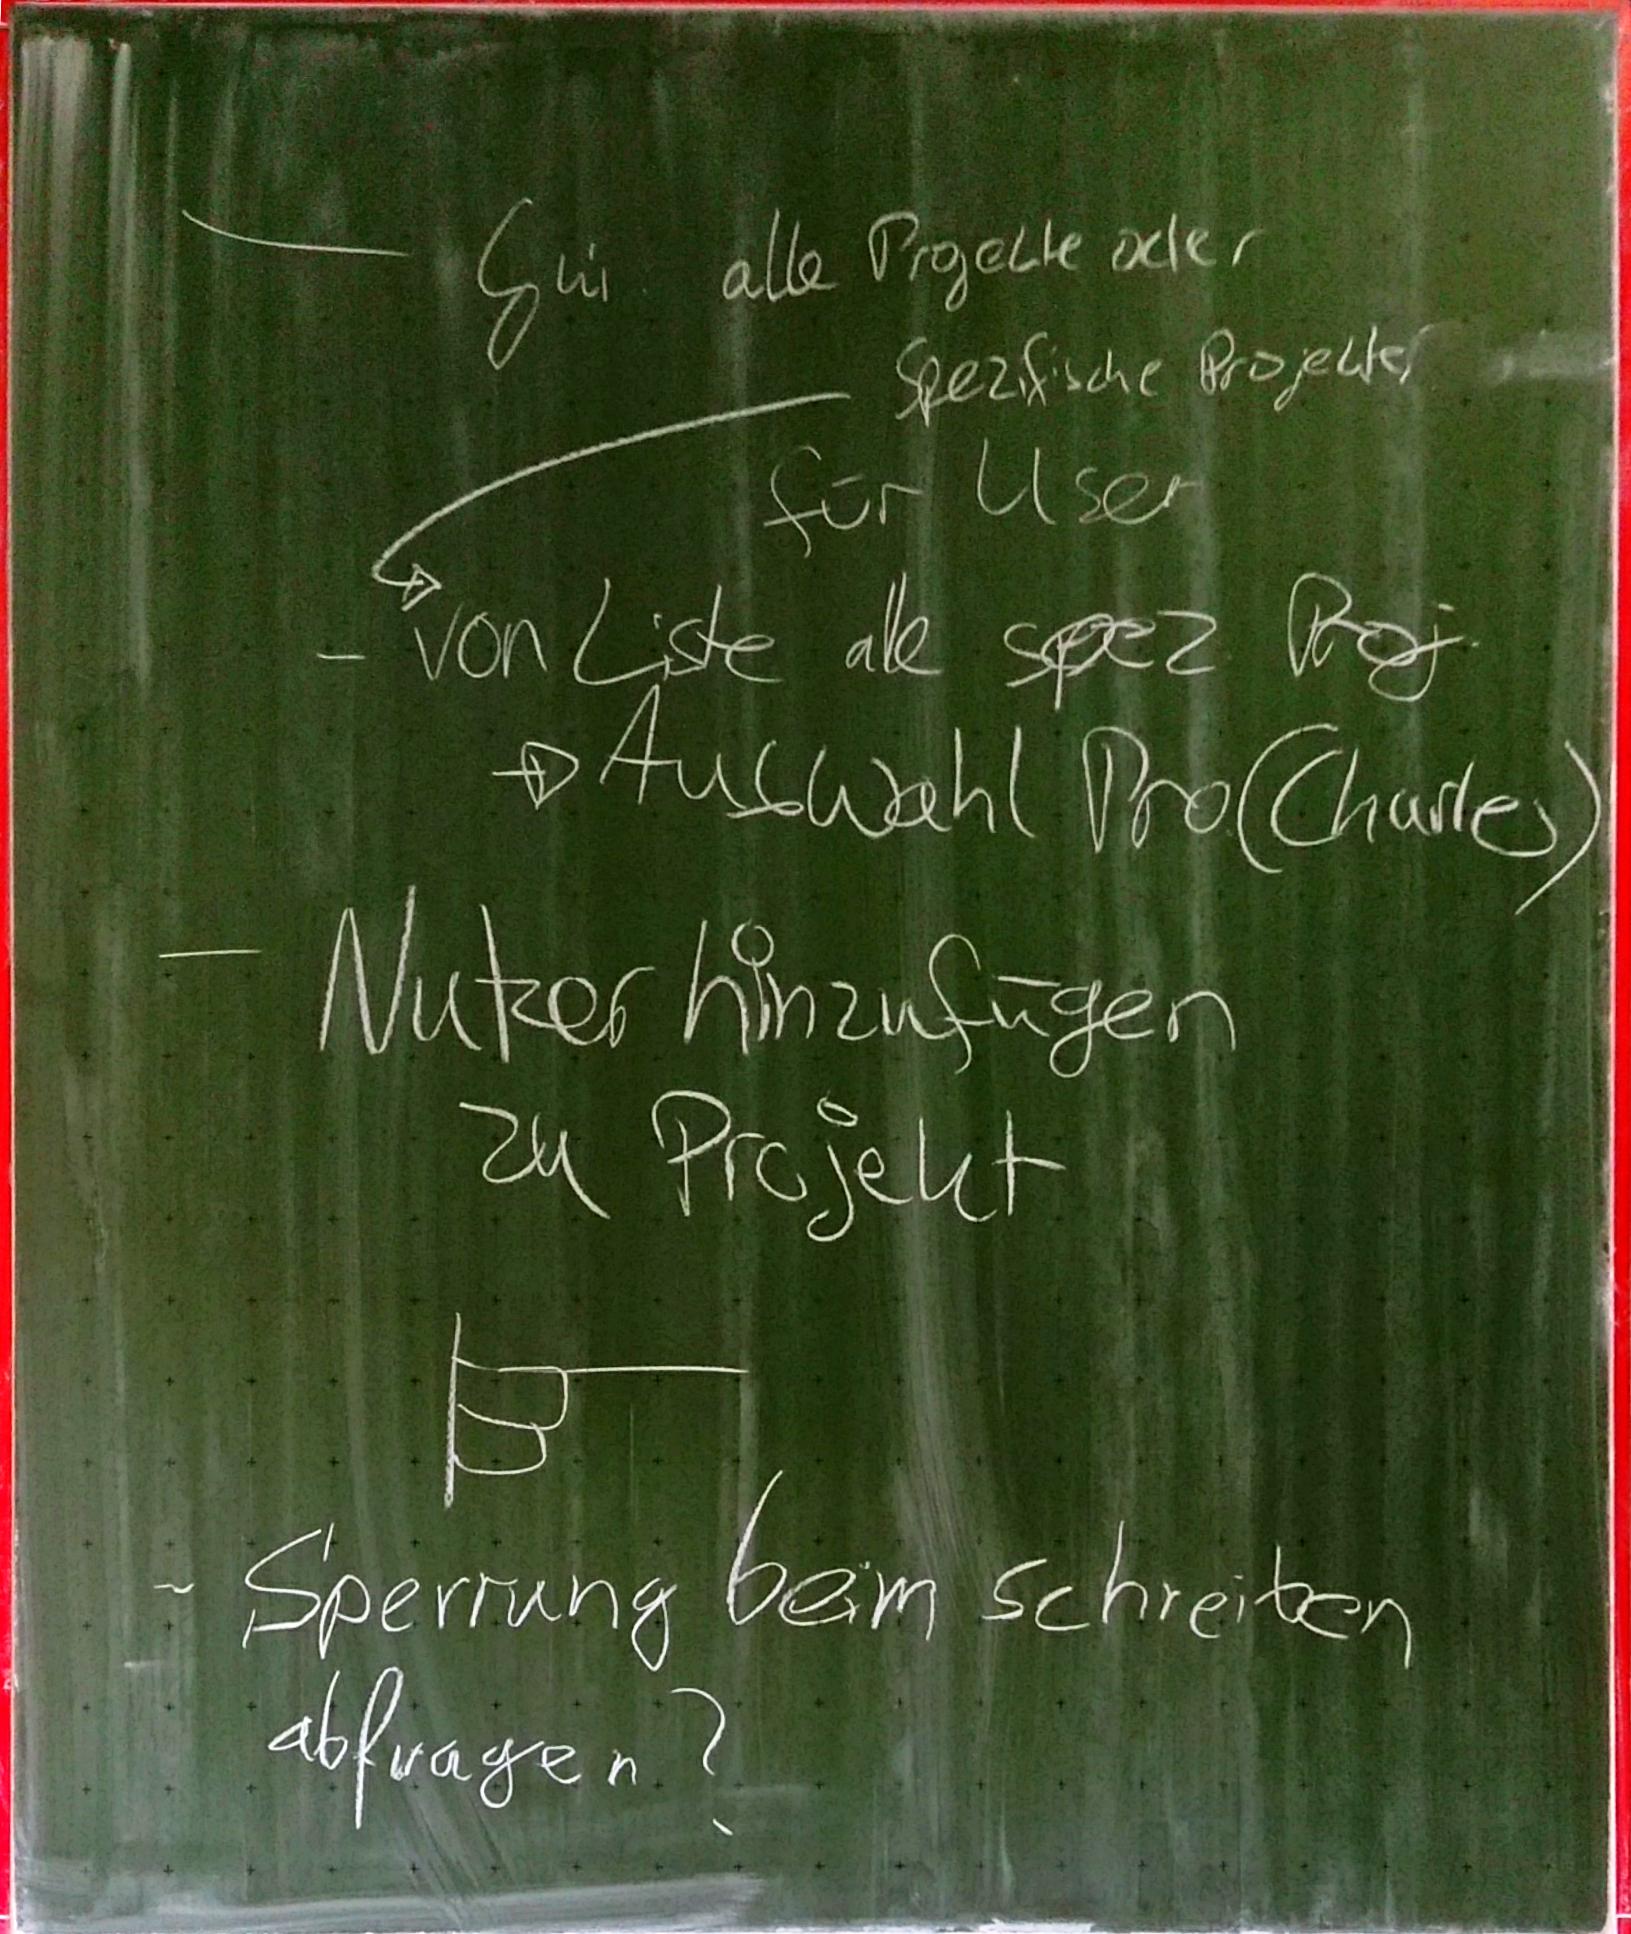 – Gui alle Projekte oder
spezifische Projekte
für User
– von Liste alle spez Proj.
→ Auswahl Pro (Charles)
– Nutzer hinzufügen
zu Projekt
- Sperrung beim schreiben
abfragen?